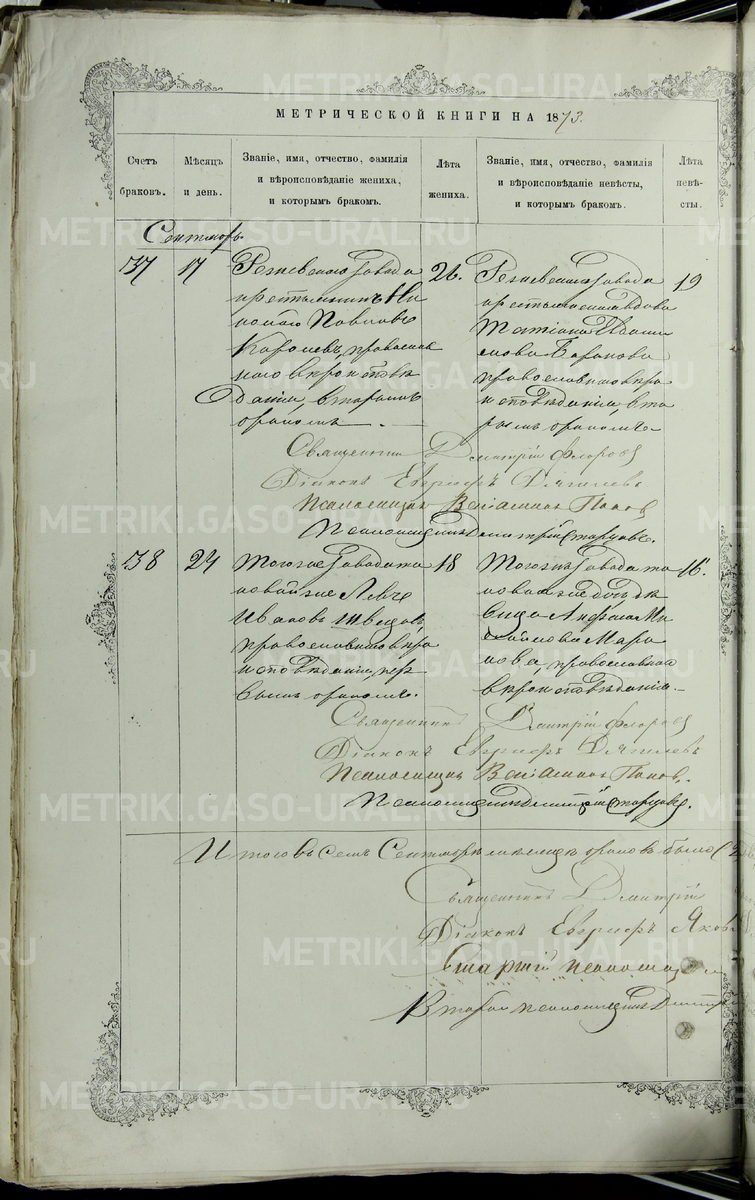 МЕТРИЧЕСКОЙ КНИГИ НА 1873.
Счетъ браковъ.
Мѣсяцъ и день.
Званіе, имя, отчество, фамилія
и вѣроисповѣданіе жениха,
и которымъ бракомъ.
Лѣта жениха.
Званіе, имя, отчество, фамилія
и вѣроисповѣданіе невѣсты,
и которымъ бракомъ.
Лѣта невѣ-
сты.
Сентябрь
37
17
Режевскаго завода
крестьянинъ Ни
колай Павловъ
Королевъ, православ
наго вѣроисповѣ
данія, вторымъ
бракомъ.
26.
Режевскаго завода
крестьянская вдова
Татіана Дани
лова
православнаго вѣро
исповѣданія, вто
рымъ бракомъ.
19
Священникъ Дмитрій Флоровъ
Діаконъ Евгенiй Дягилевъ
Псаломщикъ Веніаминъ Поповъ
Псаломщикъ Дмитрій Старцевъ.
38
24
Тогоже завода та
ковой же Левъ
Ивановъ Швецовъ
православнаго вѣро
исповѣданія, пер
вымъ бракомъ.
18
Тогоже завода та
ковая же дочь дѣ
вица Анфиса Ми
хайлова Мара
кова, православнаго
вѣроисповѣданія.
16.
Священникъ Дмитрій Флоровъ
Діаконъ Дягилевъ
Псаломщикъ Веніаминъ Поповъ.
Псаломщикъ Дмитрій Старцевъ.
Итого въ семъ Сентябрѣ мѣсяцѣ браковъ было
Священникъ Дмитрій
Діаконъ
Старшій псаломщ
Второй псаломщикъ Дмитрі
METRIKI.GASO-URAL.RU